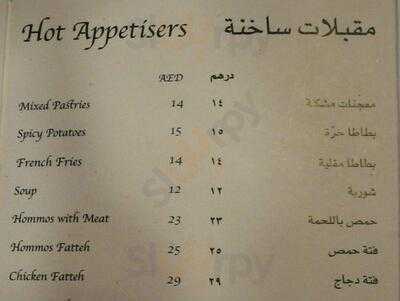 Hot Appetisers مقبلات ساخنة
AED درهم
Mixed Pastries 14 ١٤ معجنات مشكلة
Spicy Potatoes 15 ١٥ بطاطا حرّة
French Fries 14 ١٤ بطاطا مقلية
Soup 12 ١٢ شوربة
Hommos with Meat 23 ٢٣ حمص باللحمة
Hommos Fatteh 25 ٢٥ فتة حمص
Chicken Fatteh 29 ٢٩ فتة دجاج